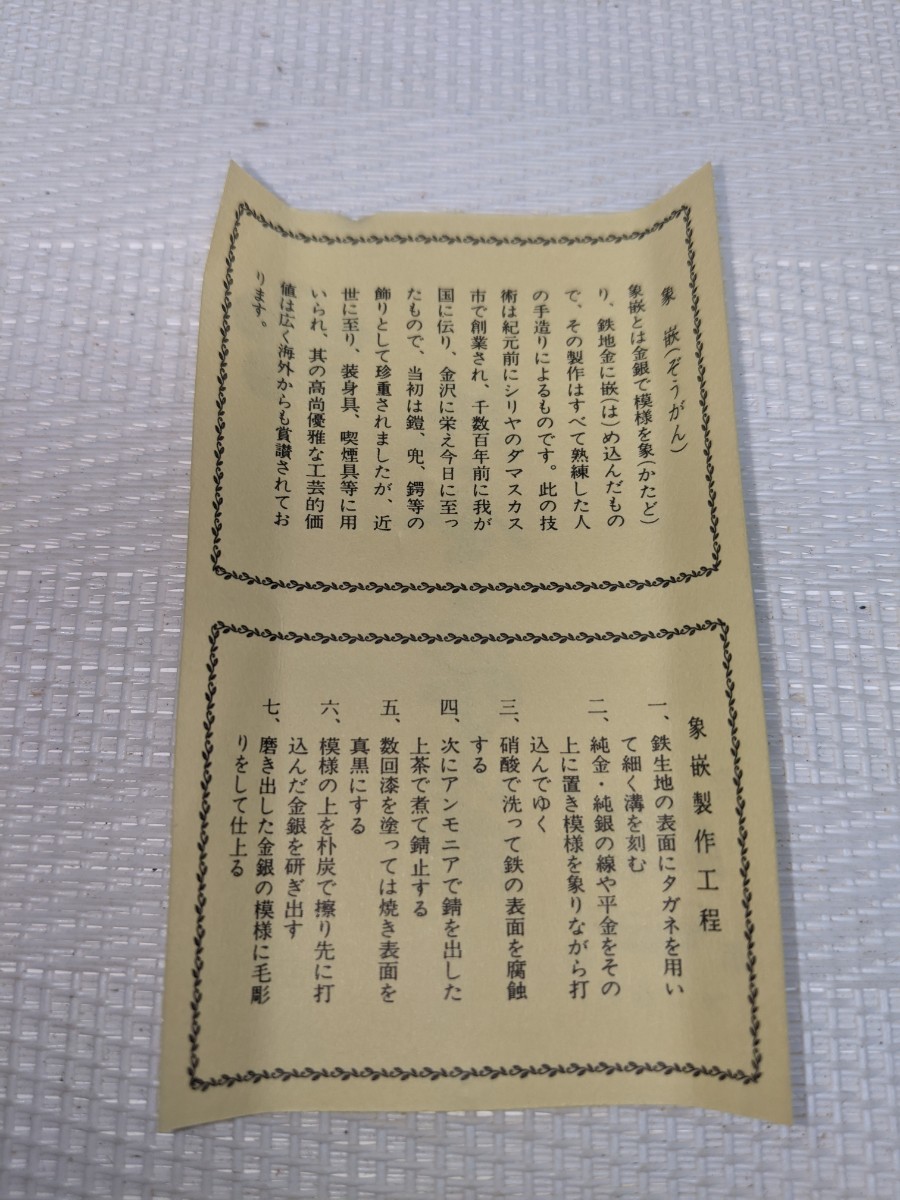 象嵌(ぞうがん)
象嵌とは金銀で模様を象(かたど)
り、鉄地金に嵌(は)め込んだもの
で、その製作はすべて熟練した人
の手造りによるものです。此の技
術は紀元前にシリヤのダマスカス
市で創業され、千数百年前に我が
国に伝り、金沢に栄え今日に至っ
たもので、当初は鎧、兜、鍔等の
飾りとして珍重されましたが、近
世に至り、装身具、喫煙具等に用
いられ、其の高尚優雅な工芸的価
値は広く海外からも賞讃されてお
ります。
象嵌製作工程
一、鉄生地の表面にタガネを用い
て細く溝を刻む
二、純金・純銀の線や平金をその
上に置き模様を象りながら打
込んでゆく
三、硝酸で洗って鉄の表面を腐蝕
する
四、次にアンモニアで錆を出した
上茶で煮て錆止する
五、数回漆を塗っては焼き表面を
真黒にする
六、模様の上を朴炭で擦り先に打
込んだ金銀を研ぎ出す
七、磨き出した金銀の模様に毛彫
りをして仕上る